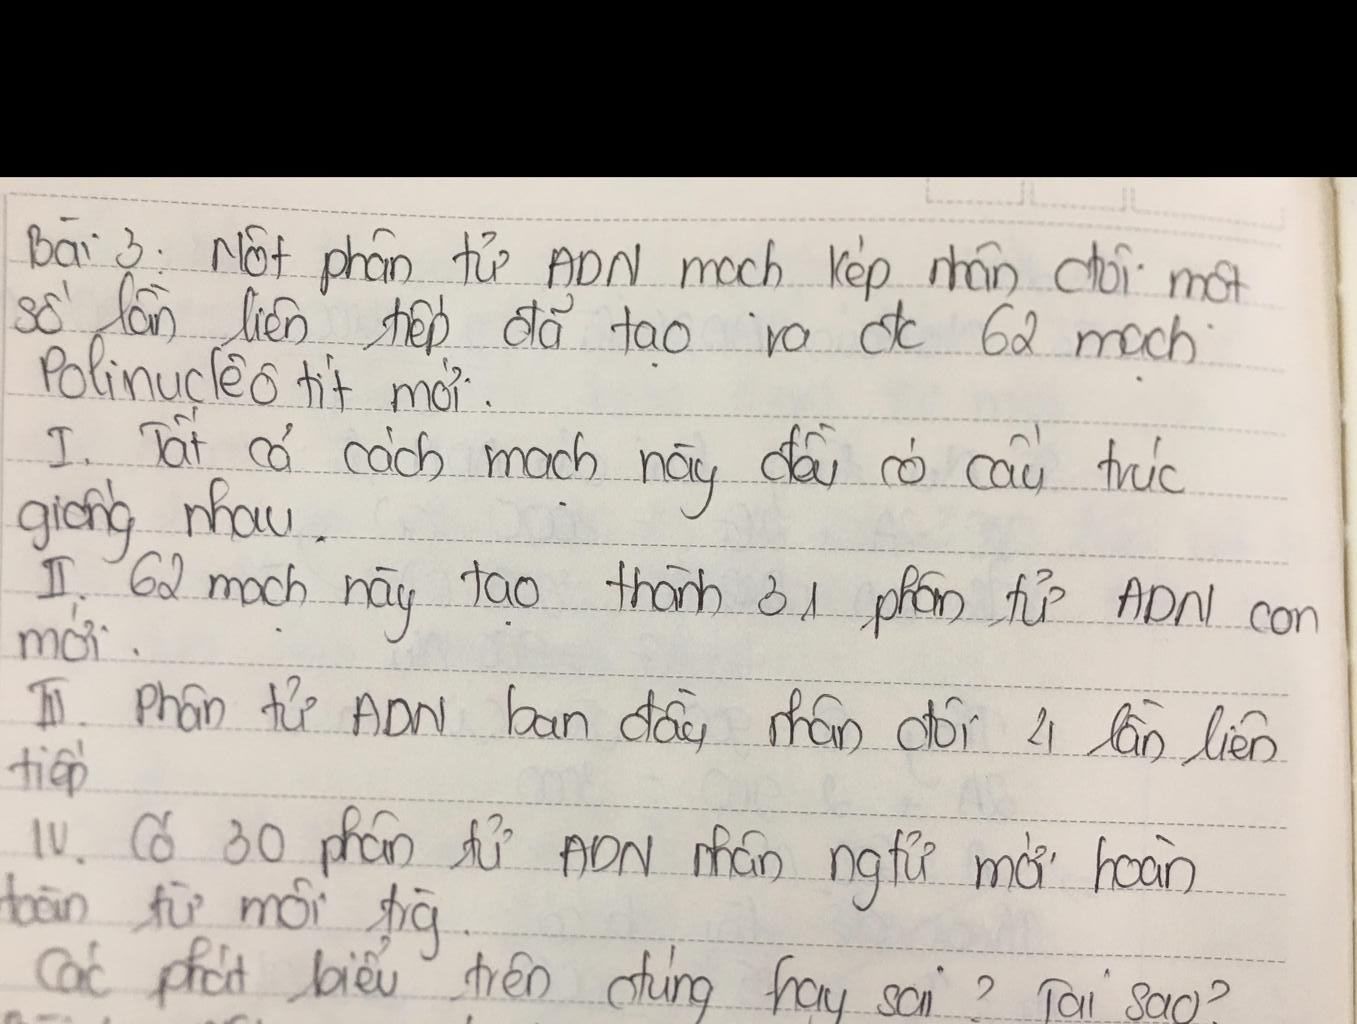 Bài 3: Một phân tử ADN mạch kép nhân đôi một
số lần liên tiếp đã tạo ra đc 62 mạch
Polinuclêôtit mới.
I. Tất cả cách mạch này đều có cấu trúc
giống nhau.
II. 62 mạch này tạo thành 31 phân tử ADN con
mới.
III. Phân tử ADN ban đầu nhân đôi 4 lần liên
tiếp
IV. Có 30 phân tử ADN nhân ngtử mới hoàn
toàn từ môi trg.
Các phát biểu trên đúng hay sai? Tại sao?